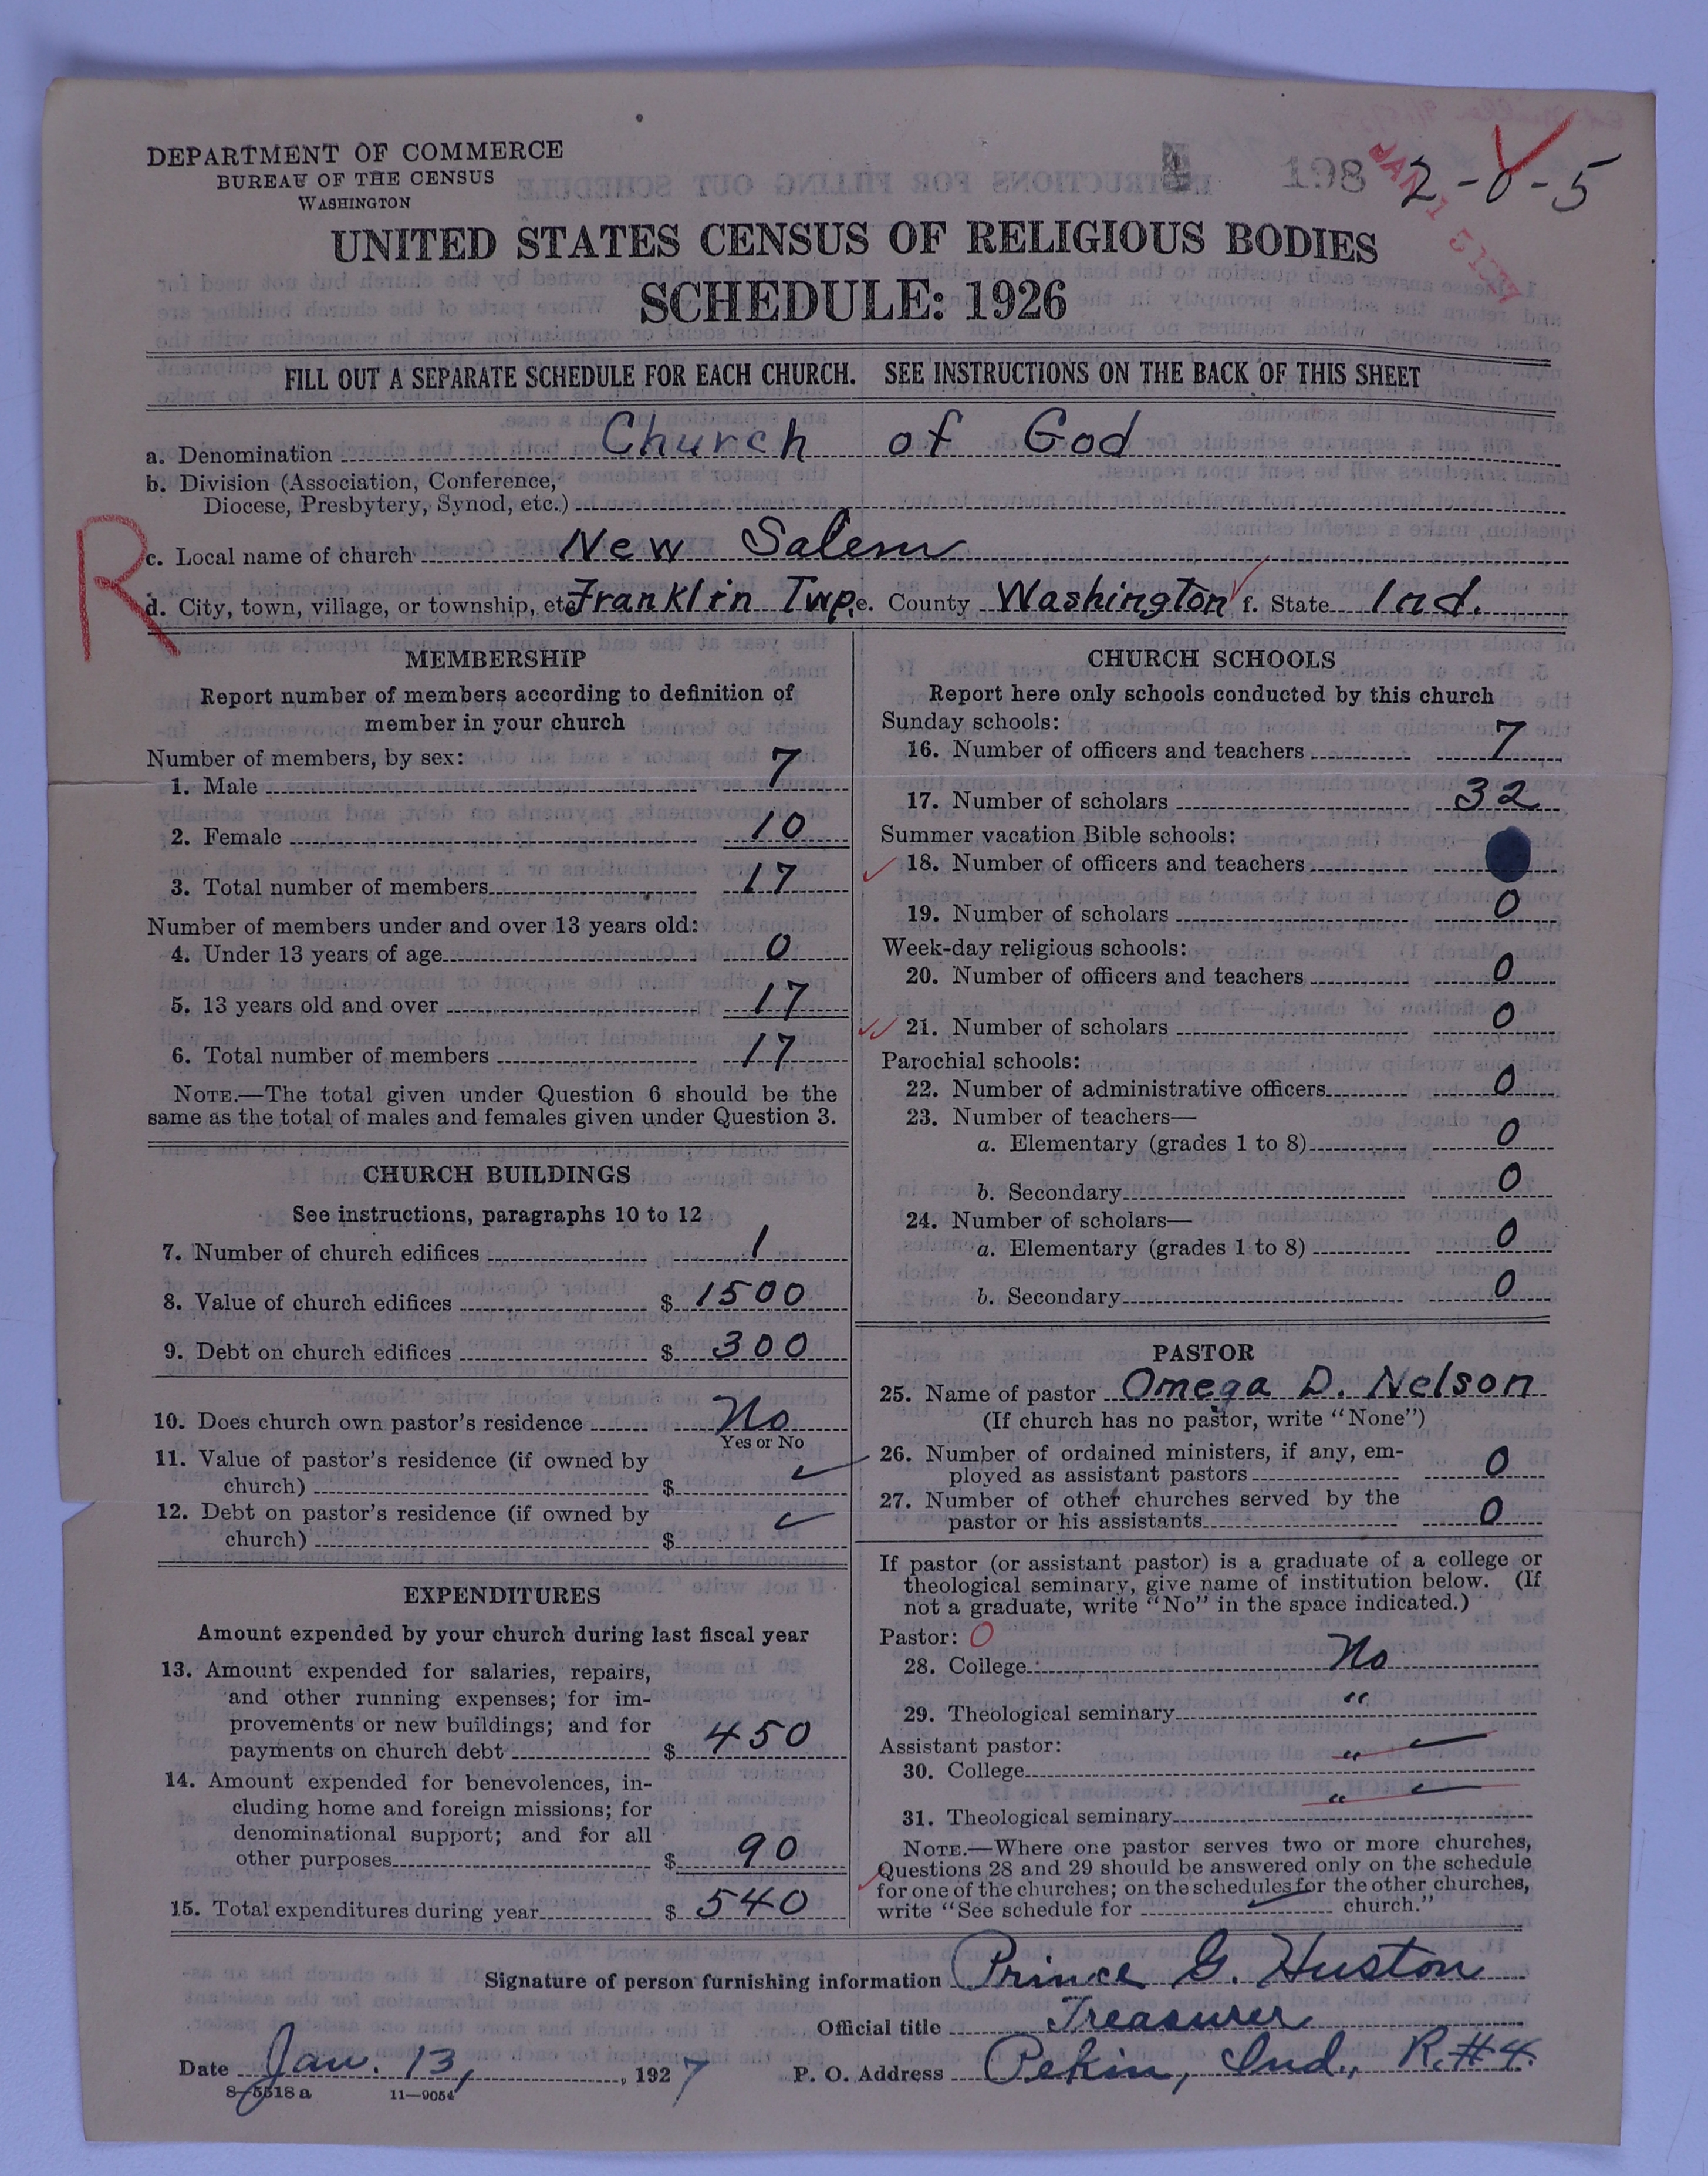 DEPARTMENT OF COMMERCE
BUREAU OF THE CENSUS
WASHINGTON
198
2-0-5
UNITED STATES CENSUS OF RELIGIOUS BODIES
SCHEDULE: 1926
FILL OUT A SEPARATE SCHEDULE FOR EACH CHURCH. SEE INSTRUCTIONS ON THE BACK OF THIS SHEET
a. Denomination Church of God
b. Division (Association, Conference,
Diocese, Presbytery, Synod, etc.)
R
c. Local name of church New Salem
d. City, town, village, or township, etc. Franklin Twp. e. County Washington f. State Ind.
MEMBERSHIP
Report number of members according to definition of
member in your church
Number of members, by sex:
1. Male 7
2. Female 10
3. Total number of members 17
Number of members under and over 13 years old:
4. Under 13 years of age 0
5. 13 years old and over 17
6. Total number of members 17
NOTE.—The total given under Question 6 should be the
same as the total of males and females given under Question 3.
CHURCH BUILDINGS
See instructions, paragraphs 10 to 12
7. Number of church edifices 1
8. Value of church edifices $ 1500
9. Debt on church edifices $ 300
10. Does church own pastor's residence No
Yes or No
11. Value of pastor's residence (if owned by
church) $ ✓
12. Debt on pastor's residence (if owned by
church) $ ✓
EXPENDITURES
Amount expended by your church during last fiscal year
13. Amount expended for salaries, repairs,
and other running expenses; for im-
provements or new buildings; and for
payments on church debt $ 450
14. Amount expended for benevolences, in-
cluding home and foreign missions; for
denominational support; and for all
other purposes $ 90
15. Total expenditures during year $ 540
CHURCH SCHOOLS
Report here only schools conducted by this church
Sunday schools:
16. Number of officers and teachers 7
17. Number of scholars 32
Summer vacation Bible schools:
18. Number of officers and teachers
19. Number of scholars 0
Week-day religious schools:
20. Number of officers and teachers 0
21. Number of scholars 0
Parochial schools:
22. Number of administrative officers 0
23. Number of teachers—
a. Elementary (grades 1 to 8) 0
b. Secondary 0
24. Number of scholars—
a. Elementary (grades 1 to 8) 0
b. Secondary 0
PASTOR
25. Name of pastor Omega D. Nelson
(If church has no pastor, write "None")
26. Number of ordained ministers, if any, em-
ployed as assistant pastors 0
27. Number of other churches served by the
pastor or his assistants 0
If pastor (or assistant pastor) is a graduate of a college or
theological seminary, give name of institution below. (If
not a graduate, write "No" in the space indicated.)
Pastor: 0
28. College No
29. Theological seminary "
Assistant pastor:
30. College " ✓
31. Theological seminary " ✓
NOTE.—Where one pastor serves two or more churches,
Questions 28 and 29 should be answered only on the schedule
for one of the churches; on the schedules for the other churches,
write "See schedule for ✓ church."
Signature of person furnishing information Prince G. Huston
Official title Treasurer
Date Jan. 13, 1927 P. O. Address Pekin, Ind., R. #4.
8-5518 a 11-9054